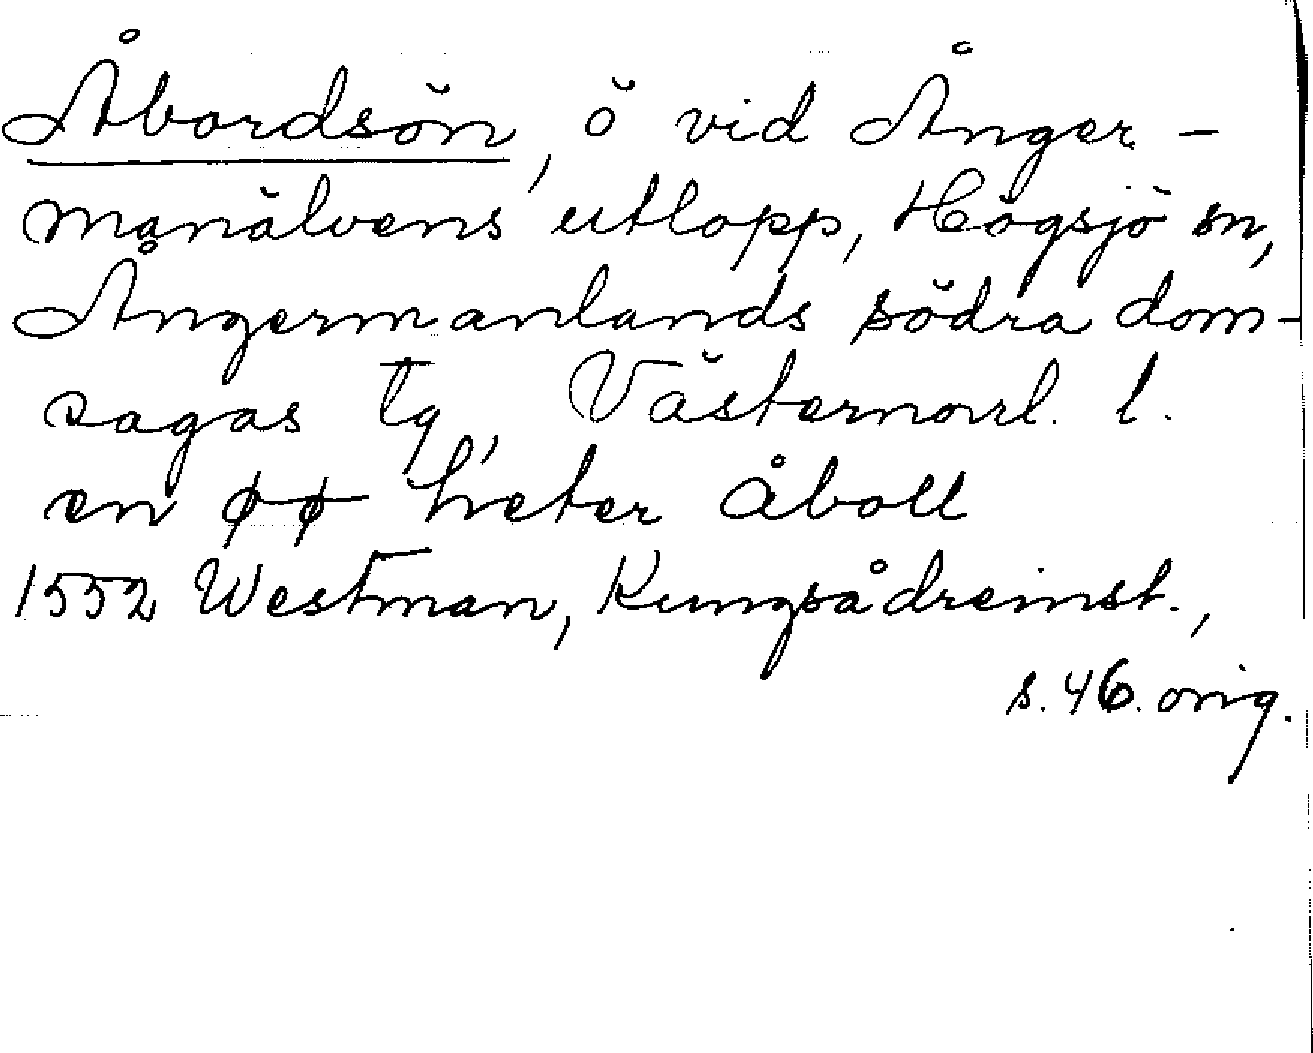 Åbordsön, ö vid Ånger-
manälvens utlopp, Högsjö sn,
Ångermanlands södra dom-
sagas tg, Västernorrl. l.
en øø heter åboll
1552 Westman, Kungsådreinst.,
s. 46. orig.